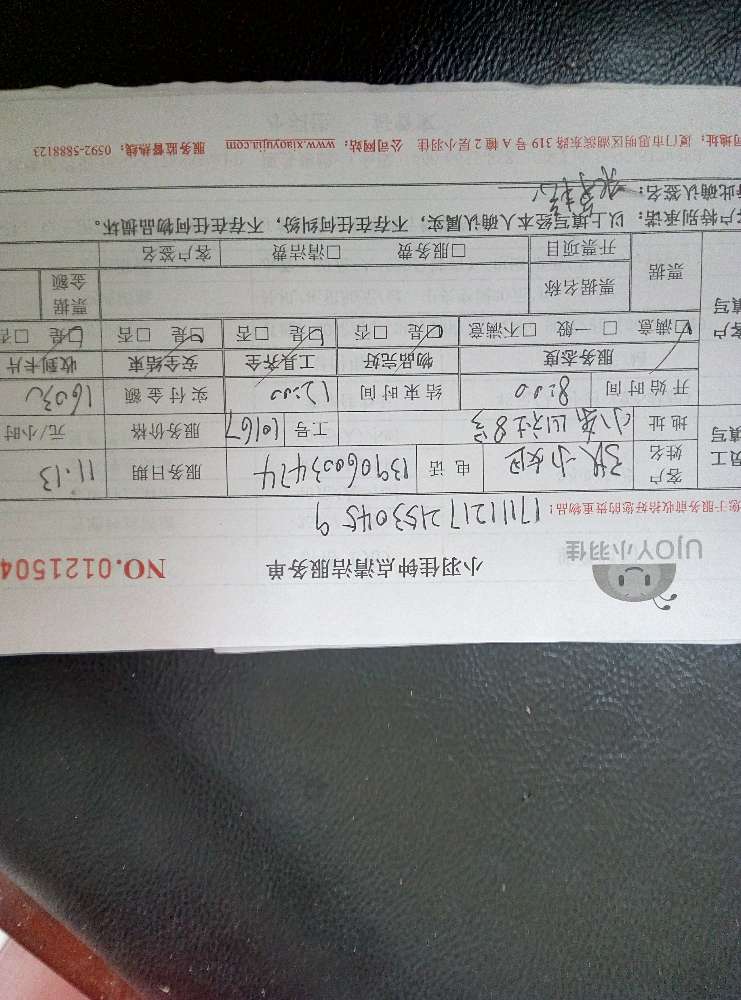 UJOY小羽佳
小羽佳钟点清洁服务单
NO.0121504
您于服务前收拾好您的贵重物品! 17111217215304 59
员工填写
客户姓名 小姐 电话 13906003474 服务日期 11.13
地址 工号 10167 服务价格 元/小时
开始时间 8:00 结束时间 12:00 实付金额 160元
客户填写
服务态度 物品完好 工具齐全 安全结束 收到卡片
☑满意 □一般 □不满意 ☑是 □否 ☑是 □否 ☑是 □否 ☑是 □否
票据 票据名称 票据金额
开票项目 □服务费 □清洁费 客户签名
客户特别承诺:以上填写经本人确认属实,不存在任何纠纷,不存在任何物品损坏。
此确认签名:
司地址:厦门市思明区湖滨东路 319 号 A 幢 2 层小羽佳 公司网站:www.xiaoyujia.com 服务监督热线:0592-5888123